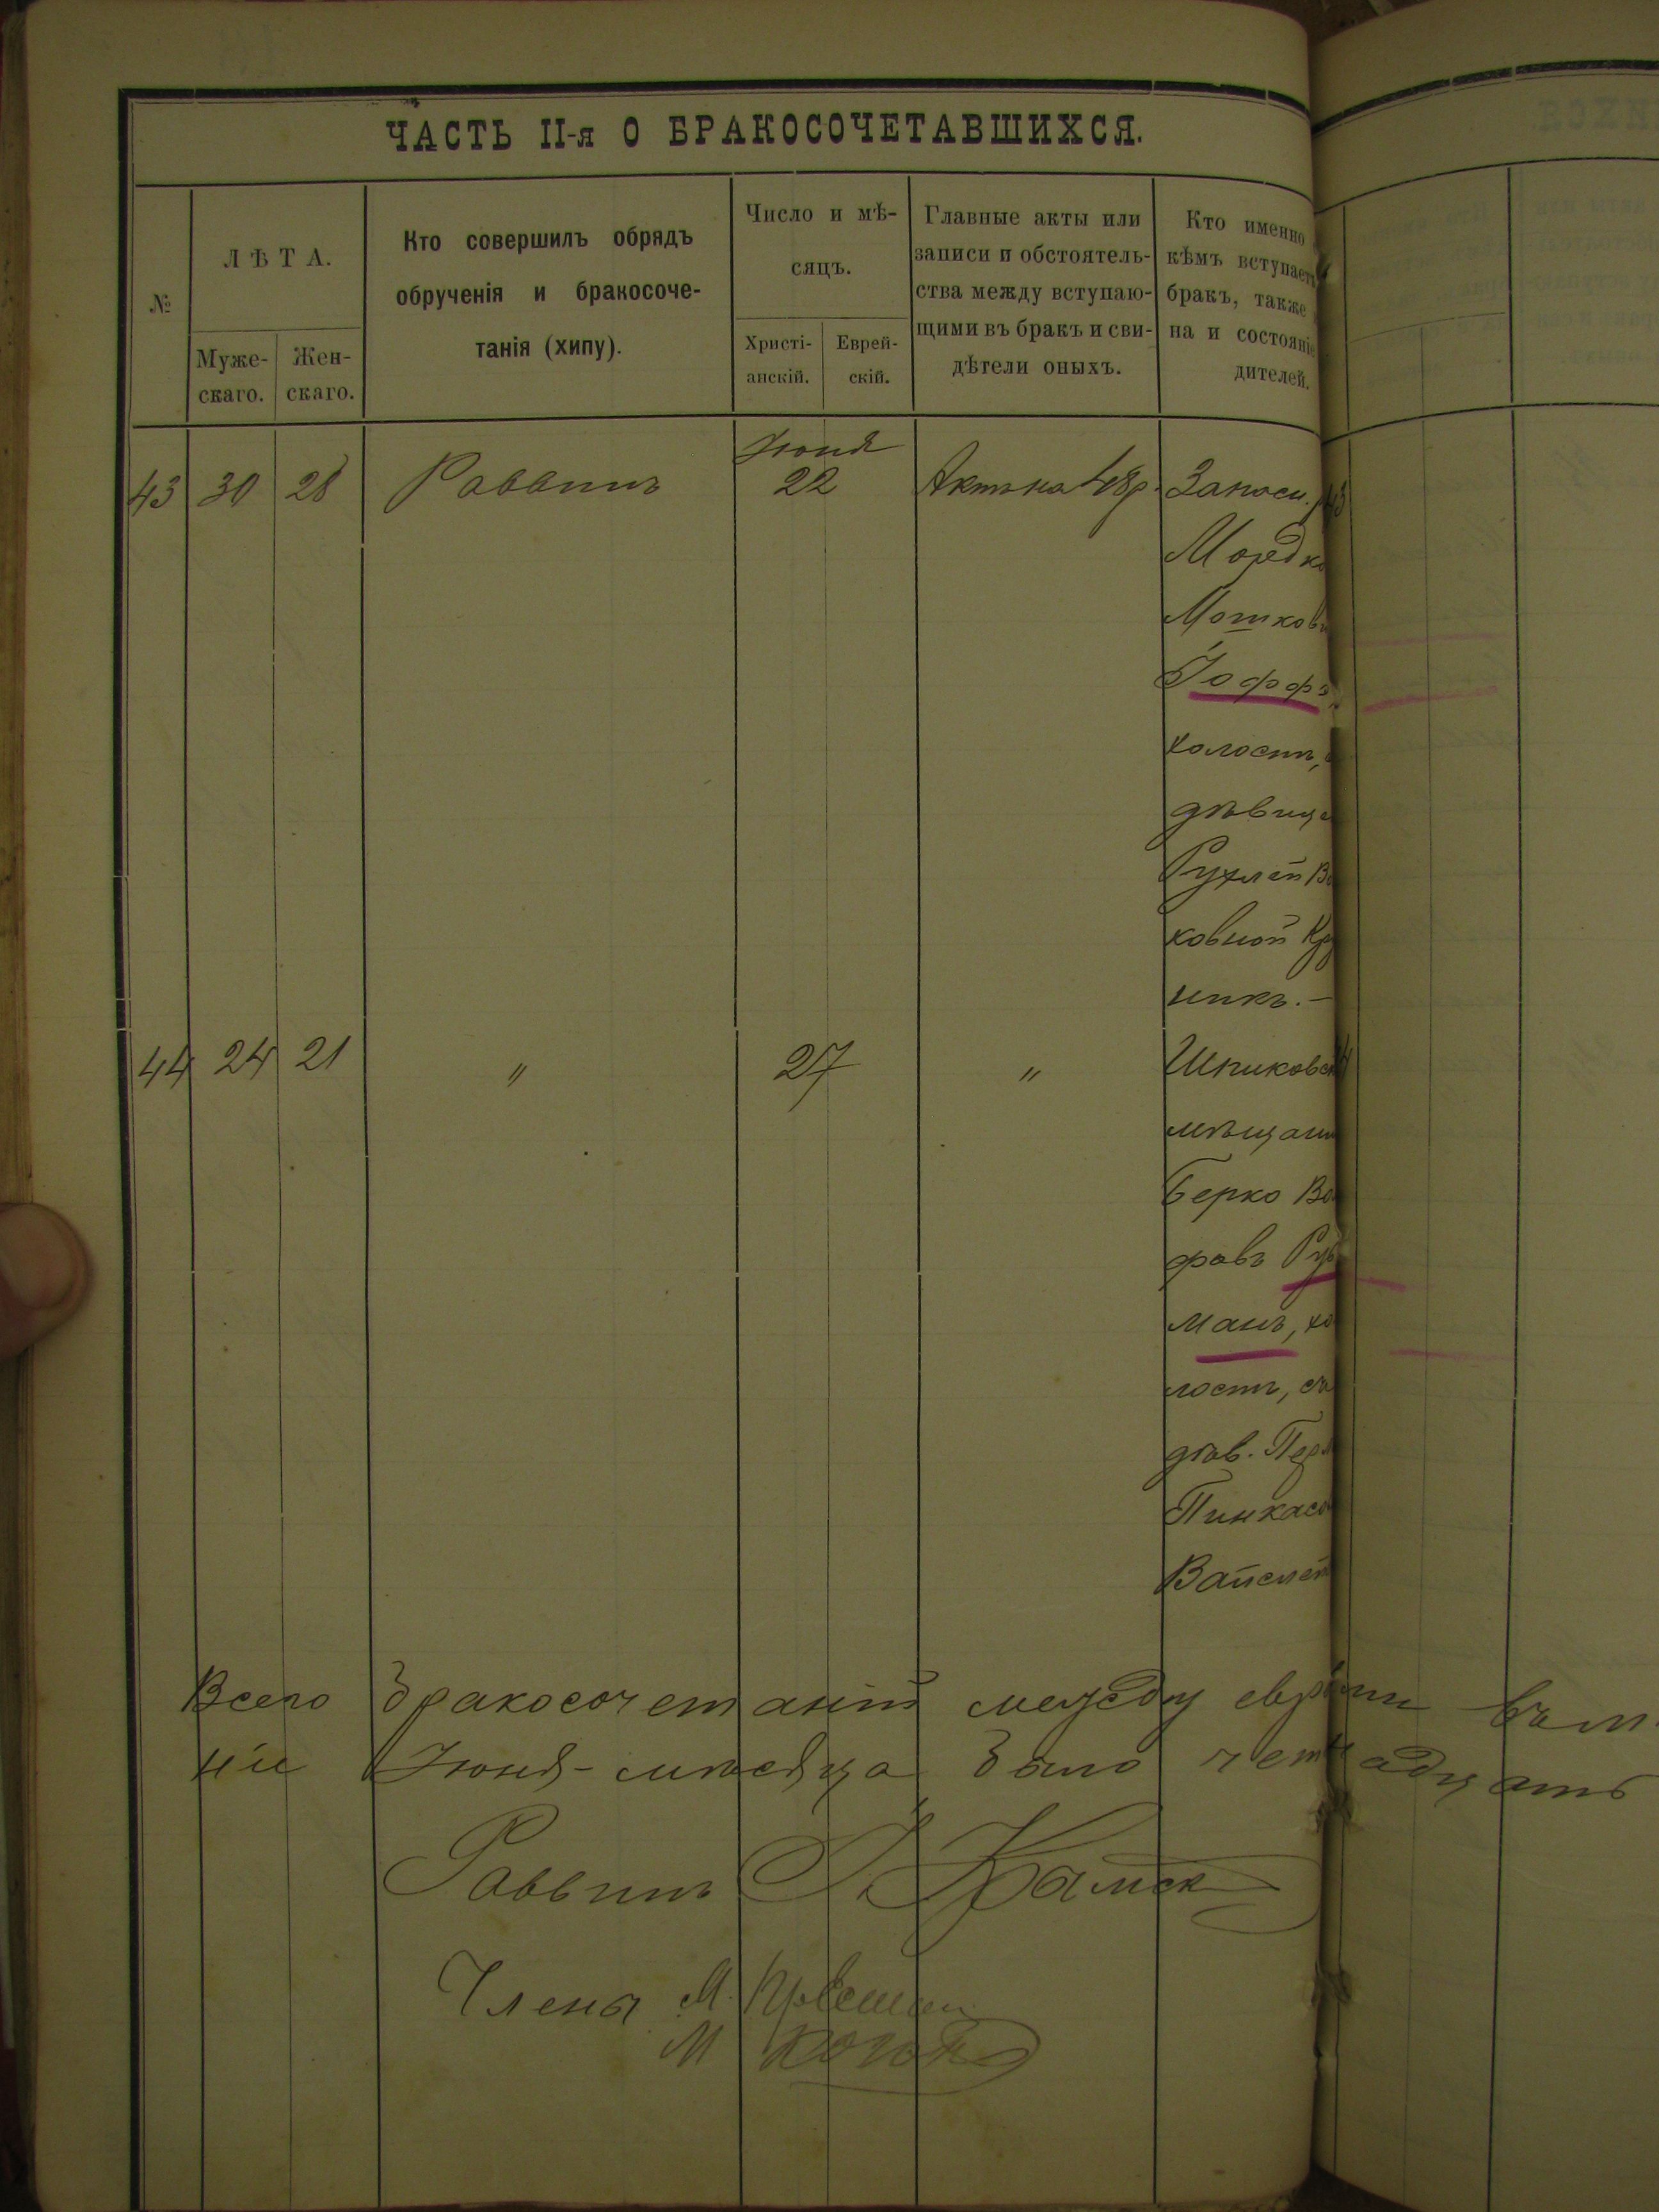 ЧАСТЬ II-я О БРАКОСОЧЕТАВШИХСЯ.
№
ЛѢТА.
Муже-
скаго.
Жен-
скаго.
Кто совершилъ обрядъ
обрученія и бракосоче-
танія (хипу).
Число и мѣ-
сяцъ.
Христі-
анскій.
Еврей-
скій.
Главные акты или
записи и обстоятель-
ства между вступаю-
щими въ бракъ и сви-
дѣтели оныхъ.
Кто именно
кѣмъ вступает
бракъ, также
на и состояніе
дителей.
Іюня
43 30 28 Раввинъ 22 Актъ на 48р. Запасн.
Мордко
Мошков
Іоффэ,
холостъ,
дѣвице
Рухлей В
ковной Кр
никъ.—
44 24 21 " 27 " Шпиковск
мѣщани
Берко Во
фовъ Ру
манъ, хо
лостъ, съ
дѣв. Перл
Пинкасо
Вайсле
Всего бракосочетаній между евр
ніи Іюня-мѣсяца было чет надцать
Раввинъ Камск
Члены М.
М Коган